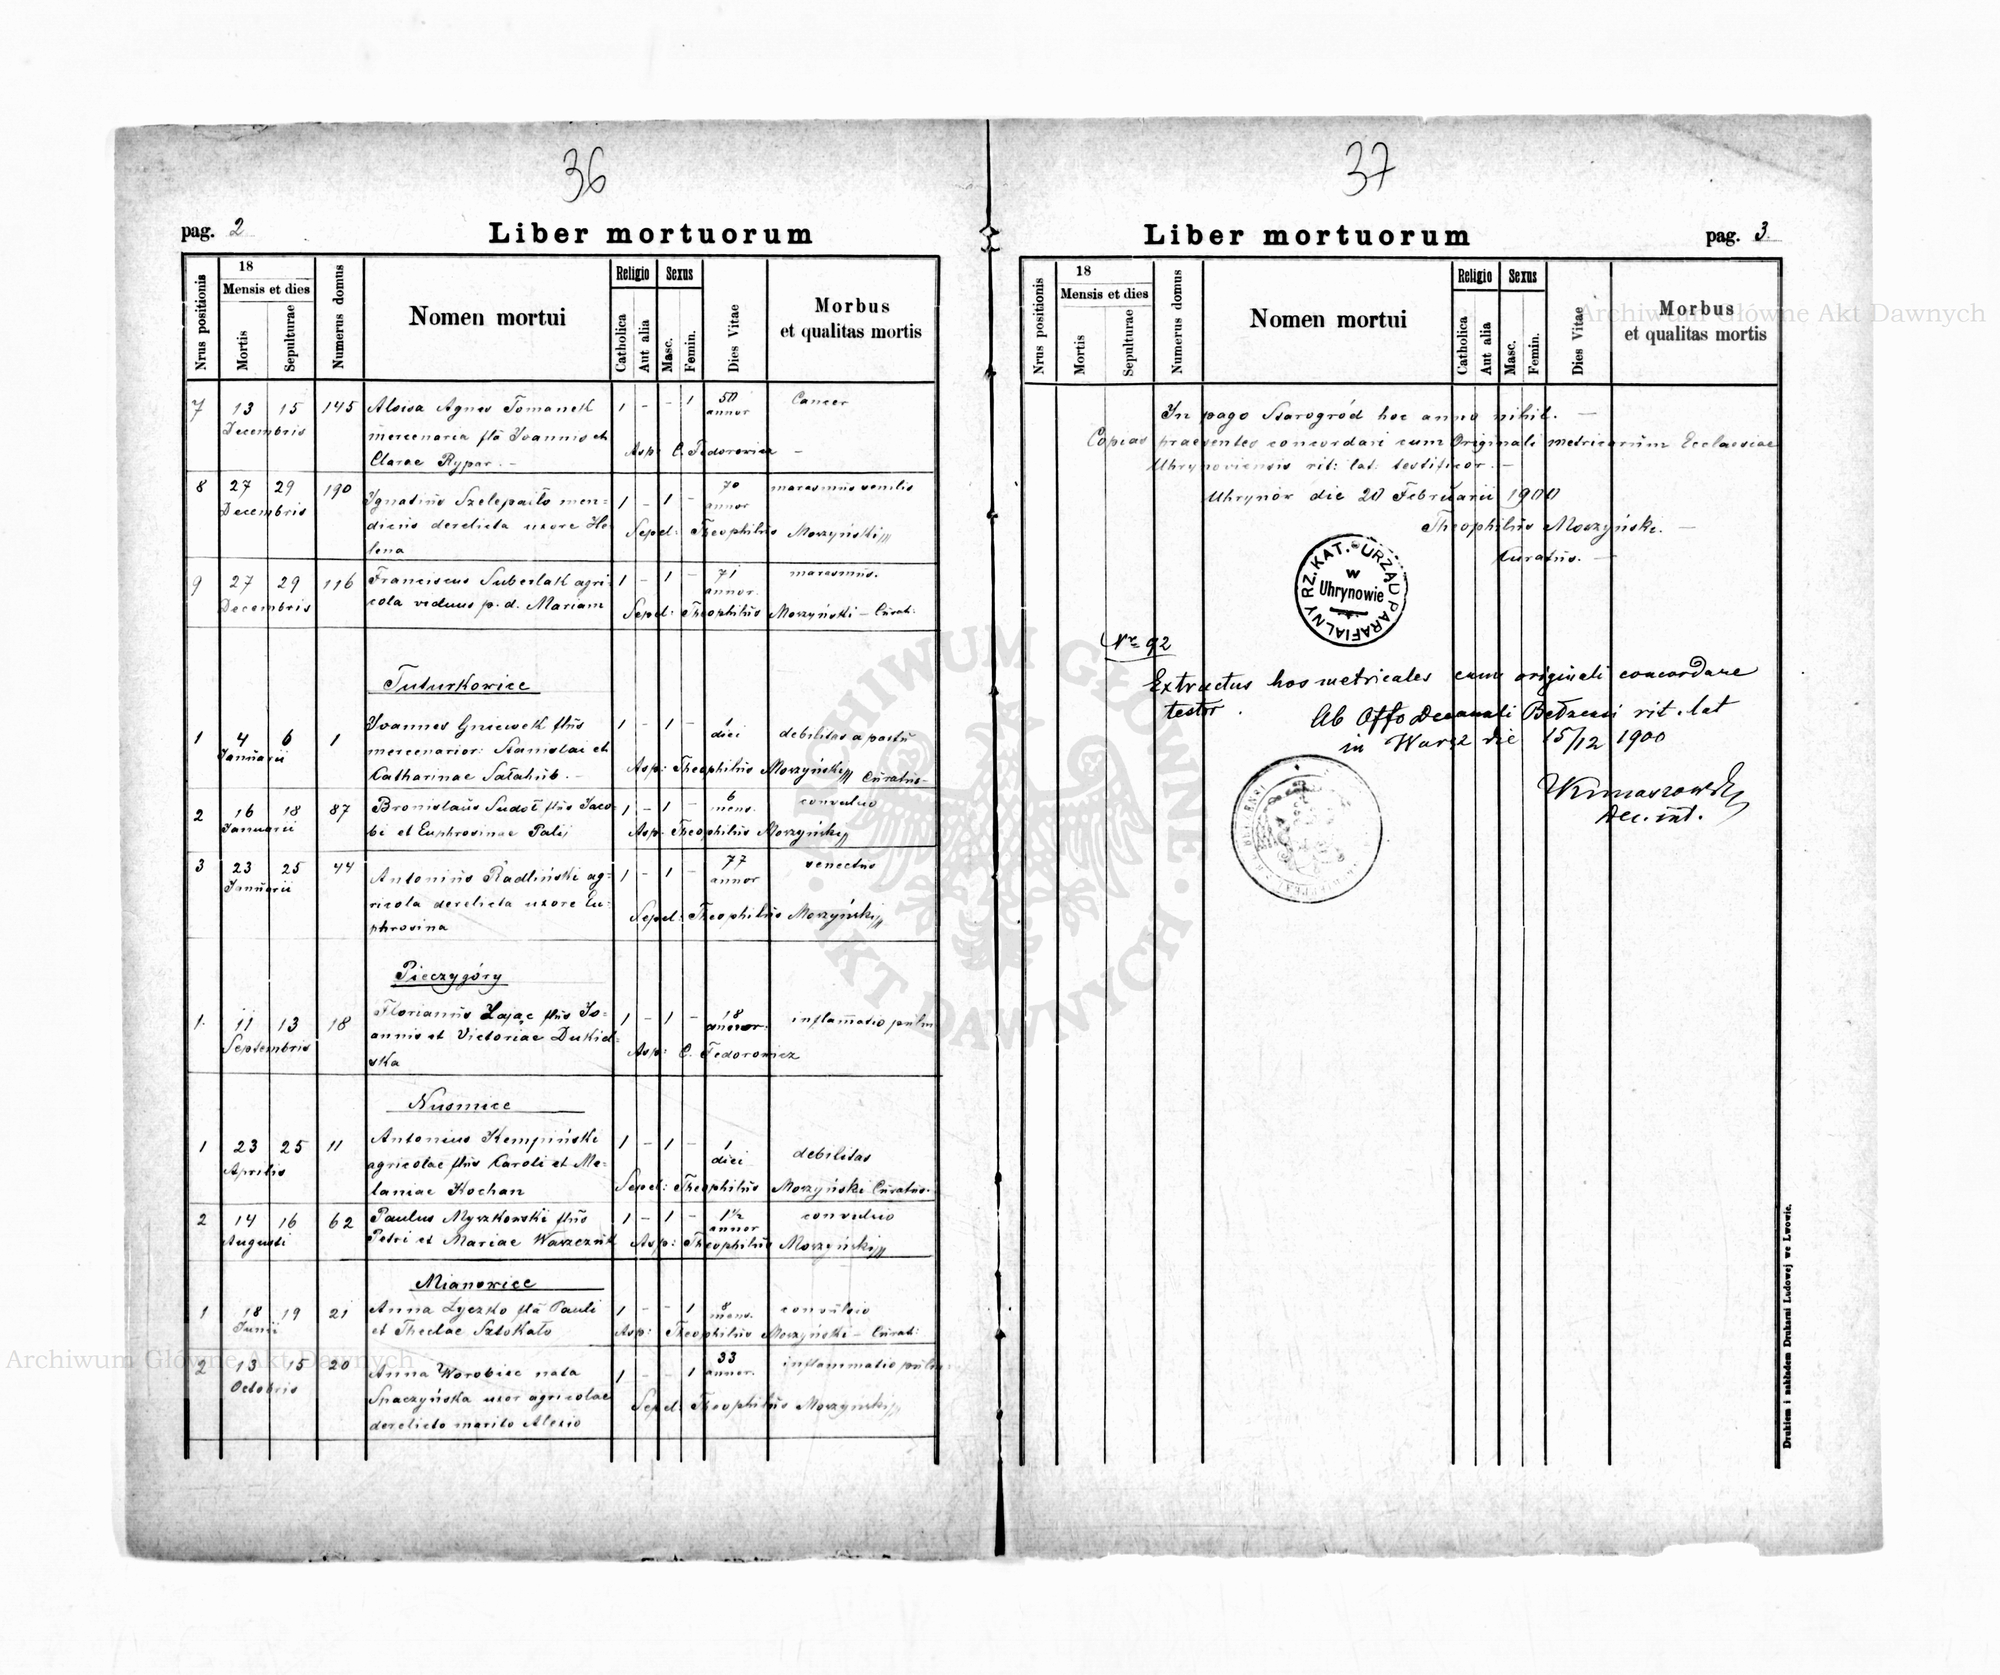 36
pag. 2
Liber mortuorum
Nrus positionis
18
Mensis et dies
Mortis
Sepulturae
Numerus domus
Nomen mortui
Religio
Catholica
Aut alia
Sexus
Masc.
Femin.
Dies Vitae
Morbus
et qualitas mortis
7 13 15 145 Aloisa Agnes Tomanek 1 - - 1 50 Cancer
Decembris mercenaria fla Joannis et annor
Clarae Rypar. - Asp: C. Fedorowicz -
8 27 29 190 Ignatius Szelepaiło men= 1 - 1 - 70 marasmus senilis
Decembris dicus derelicta uxore He annor
lena Sepel: Theophilus Morzyński
9 27 29 116 Franciscus Suberlak agri= 1 - 1 - 71 marasmus.
Decembris cola viduus p. d. Mariam annor.
Sepel: Theophilus Morzyński - Curat:
Tuturkowice
1 4 6 1 Joannes Gniewek flus 1 - 1 - 1 debilitas a partu
Januarii mercenarior: Stanislai et diei
Katharinae Sałahub. - Asp: Theophilus Morzyński Curatus-
2 16 18 87 Bronislaus Sudoł flus Jaco= 1 - 1 - 6 convulsio
Januarii bi et Euphrosinae Palij mens.
Asp. Theophilus Morzyński
3 23 25 44 Antonius Radliński ag= 1 - 1 - 77 senectus
Januarii ricola derelicta uxore Eu= annor
phrosina Sepel: Theophilus Morzyński
Pieczygóry
1. 11 13 18 Florianus Zając flus Jo= 1 - 1 - 18 inflamatio pulm
Septembris annis et Victoriae Dukiel= annor.
ska Asp: C. Fedorowicz
Nusmice
1 23 25 11 Antonius Kempiński 1 - 1 - 1 debilitas
Aprilis agricolae flus Caroli et Me= diei
laniae Kochan Sepel: Theophilus Morzyński Curatus.
2 14 16 62 Paulus Myszkowski flus 1 - 1 - 1½ convulsio
Augusti Petri et Mariae Warzczuk annor
Asp: Theophilus Morzyński
Mianowice
1 18 19 21 Anna Łyczko fla Pauli 1 - - 1 8 convulsio
Junii et Theclae Sztokało mens.
Asp: Theophilus Morzyński - Curat:
2 13 15 20 Anna Worobiec nata 1 - - 1 33 inflammatio pulm
Octobris Spaczyńska uxor agricolae annor.
derelicto marito Alexio Sepel: Theophilus Morzyński
37
Liber mortuorum
pag. 3
Nrus positionis
18
Mensis et dies
Mortis
Sepulturae
Numerus domus
Nomen mortui
Religio
Catholica
Aut alia
Sexus
Masc.
Femin.
Dies Vitae
Morbus
et qualitas mortis
In pago Starogród hoc anno nihil. -
Copias praesentes concordari cum Originali metricarum Ecclaesiae
Uhrynoviensis rit: lat: testificor. -
Uhrynów die 20 Februarii 1900
Theophilus Morzyński. -
Curatus. -
RZ. KAT. URZĄD PARAFIALNY
w
Uhrynowie
Nr 92
Extractus hos metricales cum originali concordare
testor.
Ab Offo Decanali Bełzensi rit. lat
in Waręż die 15/12 1900
Dec. int.
Drukiem i nakładem Drukarni Ludowej we Lwowie.
Archiwum Główne Akt Dawnych
Archiwum Główne Akt Dawnych
ARCHIWUM GŁÓWNE AKT DAWNYCH